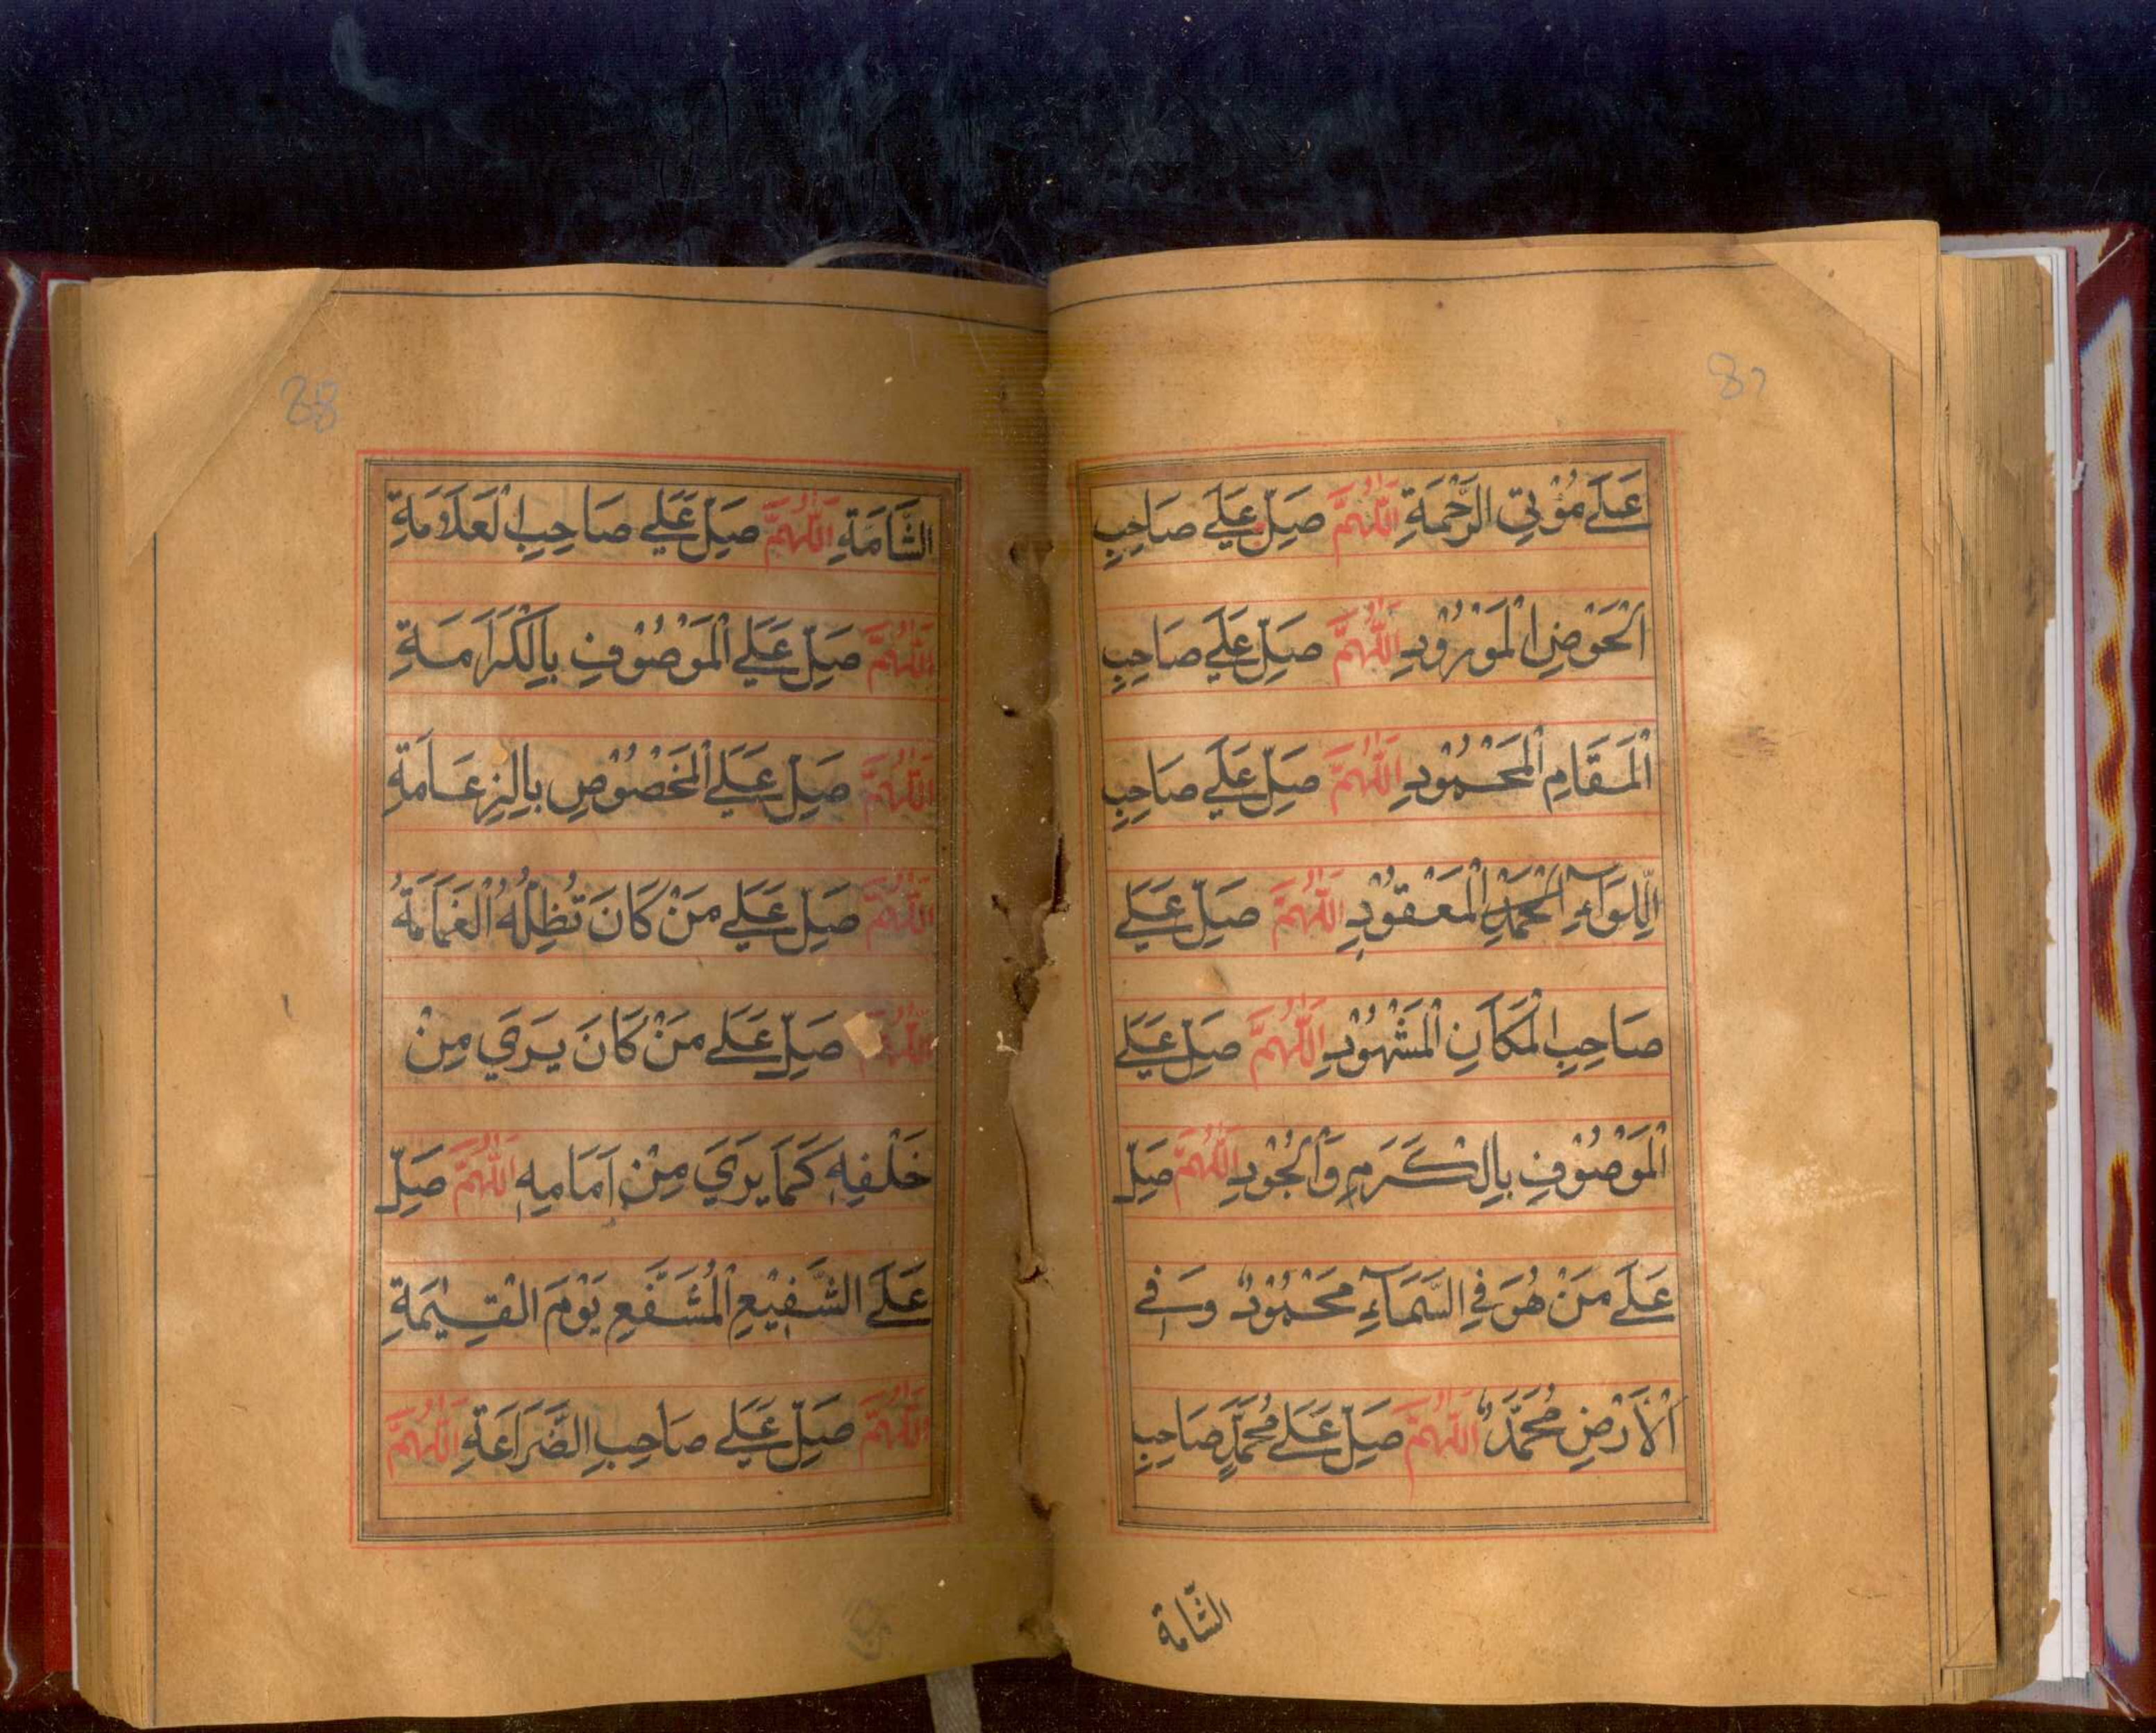 87
عَلَى مُؤْتِي الرَّحْمَةِ اَللّٰهُمَّ صَلِّ عَلَى صَاحِبِ
الْحَوْضِ الْمَوْرُوْدِ اَللّٰهُمَّ صَلِّ عَلَى صَاحِبِ
الْمَقَامِ الْمَحْمُوْدِ اَللّٰهُمَّ صَلِّ عَلَى صَاحِبِ
اللِّوَآءِ الْحَمْدِ الْمَعْقُوْدِ اَللّٰهُمَّ صَلِّ عَلَى
صَاحِبِ الْمَكَانِ الْمَشْهُوْدِ اَللّٰهُمَّ صَلِّ عَلَى
الْمَوْصُوْفِ بِالْكَرَمِ وَالْجُوْدِ اَللّٰهُمَّ صَلِّ
عَلَى مَنْ هُوَ فِي السَّمَآءِ مَحْمُوْدٌ وَ فِي
الْاَرْضِ مُحَمَّدٌ اَللّٰهُمَّ صَلِّ عَلَى مُحَمَّدٍ صَاحِبِ
الشَّامَة
88
الشَّامَةِ اَللّٰهُمَّ صَلِّ عَلَى صَاحِبِ الْعَلَامَةِ
اَللّٰهُمَّ صَلِّ عَلَى الْمَوْصُوْفِ بِالْكَرَامَةِ
اَللّٰهُمَّ صَلِّ عَلَى الْمَخْصُوْصِ بِالزِّعَامَةِ
اَللّٰهُمَّ صَلِّ عَلَى مَنْ كَانَ تُظِلُّهُ الْغَمَامَةُ
اَللّٰهُمَّ صَلِّ عَلَى مَنْ كَانَ يَرَى مِنْ
خَلْفِهٖ كَمَا يَرَى مِنْ اَمَامِهٖ اَللّٰهُمَّ صَلِّ
عَلَى الشَّفِيْعِ الْمُشَفَّعِ يَوْمَ الْقِيٰمَةِ
اَللّٰهُمَّ صَلِّ عَلَى صَاحِبِ الضَّرَاعَةِ اَللّٰهُمَّ